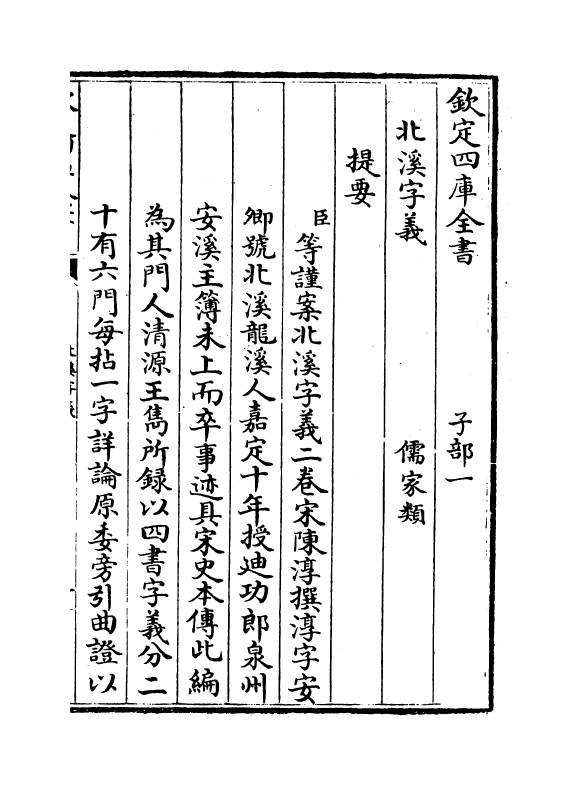 欽定四庫全書　　　　　子部一
北溪字義　　　　　　　儒家類
提要
臣等謹案北溪字義二卷宋陳淳撰淳字安
卿號北溪龍溪人嘉定十年授迪功郎泉州
安溪主簿未上而卒事迹具宋史本傳此編
為其門人清源王雋所録以四書字義分二
十有六門每拈一字詳論原委旁引曲證以